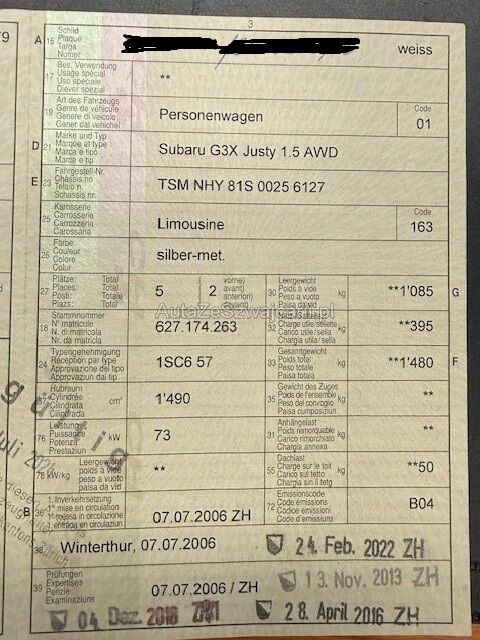 3
A
15
Schild
Plaque
Targa
Numer
weiss
17
Bes. Verwendung
Usage spécial
Uso speciale
Diever spezial
**
19
Art des Fahrzeugs
Genre de véhicule
Genere di veicolo
Gener dal vehichel
Personenwagen
Code
01
D
21
Marke und Typ
Marque et type
Marca e tipo
Marca e tip
Subaru G3X Justy 1.5 AWD
E
23
Fahrgestell-Nr.
Châssis no
Telaio n.
Schassis nr.
TSM NHY 81S 0025 6127
25
Karosserie
Carrosserie
Carrozzeria
Carrossaria
Limousine
Code
163
26
Farbe
Couleur
Colore
Colur
silber-met.
27
Plätze: Total
Places: Total
Posti: Totale
Plazs: Total
5
2
vorne)
avant)
anteriori)
davant)
30
Leergewicht
Poids à vide
Peso a vuoto
Paisa da vid
kg
**1'085
G
AutaZeSzwajcarii.pl
18
Stammnummer
N° matricule
N. di matricola
Nr. da matricla
627.174.263
32
Charge utile/sellette
Carico utile/sella
Chargia utila/sella
kg
**395
24
Typengenehmigung
Réception par type
Approvazione del tipo
Approvaziun dal tip
1SC6 57
33
Gesamtgewicht
Poids total
Peso totale
Paisa totala
kg
**1'480
F
Hubraum
Cylindrée
Cilindrata
Cilindrada
cm³
1'490
35
Gewicht des Zuges
Poids de l'ensemble
Peso del convoglio
Paisa cumposiziun
kg
**
76
Leistung
Puissance
Potenza
Prestaziun
kW
73
31
Anhängelast
Poids remorquable
Carico rimorchiato
Chargia annexa
kg
**
78
kW/kg
Leergewicht
poids à vide
peso a vuoto
paisa da vid
**
55
Dachlast
Charge sur le toit
Carico sul tetto
Chargia sin il tetg
kg
**50
B
36
1. Inverkehrsetzung
1re mise en circulation
1. messa in circolazione
1. entrada en circulaziun
07.07.2006 ZH
72
Emissionscode
Code émissions
Codice emissioni
Code d'emissiuns
B04
38
Winterthur, 07.07.2006
24. Feb. 2022 ZH
39
Prüfungen
Expertises
Perizie
Examinaziuns
07.07.2006 / ZH
13. Nov. 2013 ZH
04 Dez 2018 ZH
28. April 2016 ZH